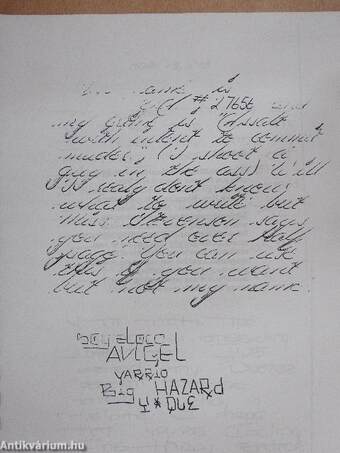 name is
# 27656 and
my crime is "Assalt
with intent to commit
muder," (i shoot a
guy in the ass) Well
I realy don't know
what to write but
miss Stevenson says
you need over half
page. You can use
this if you want
but not my name.
AVIGEL
VARRIO
Big HAZARd
Antikvárium.hu